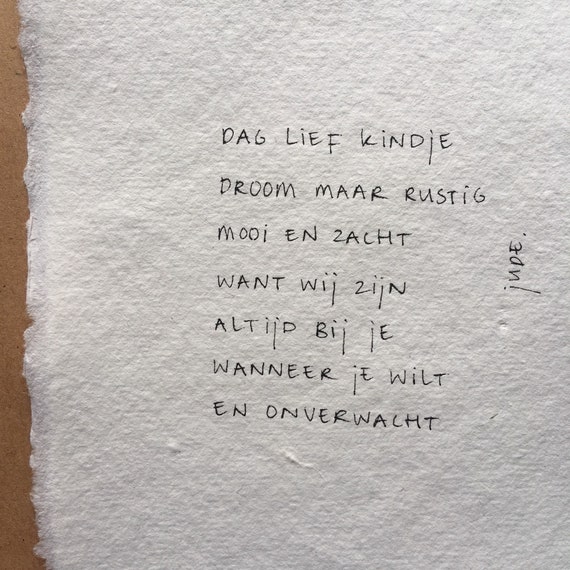 DAG LIEF KINDJE
DROOM MAAR RUSTIG
MOOI EN ZACHT
WANT WIJ ZIJN
ALTIJD BIJ JE
WANNEER JE WILT
EN ONVERWACHT
jude.